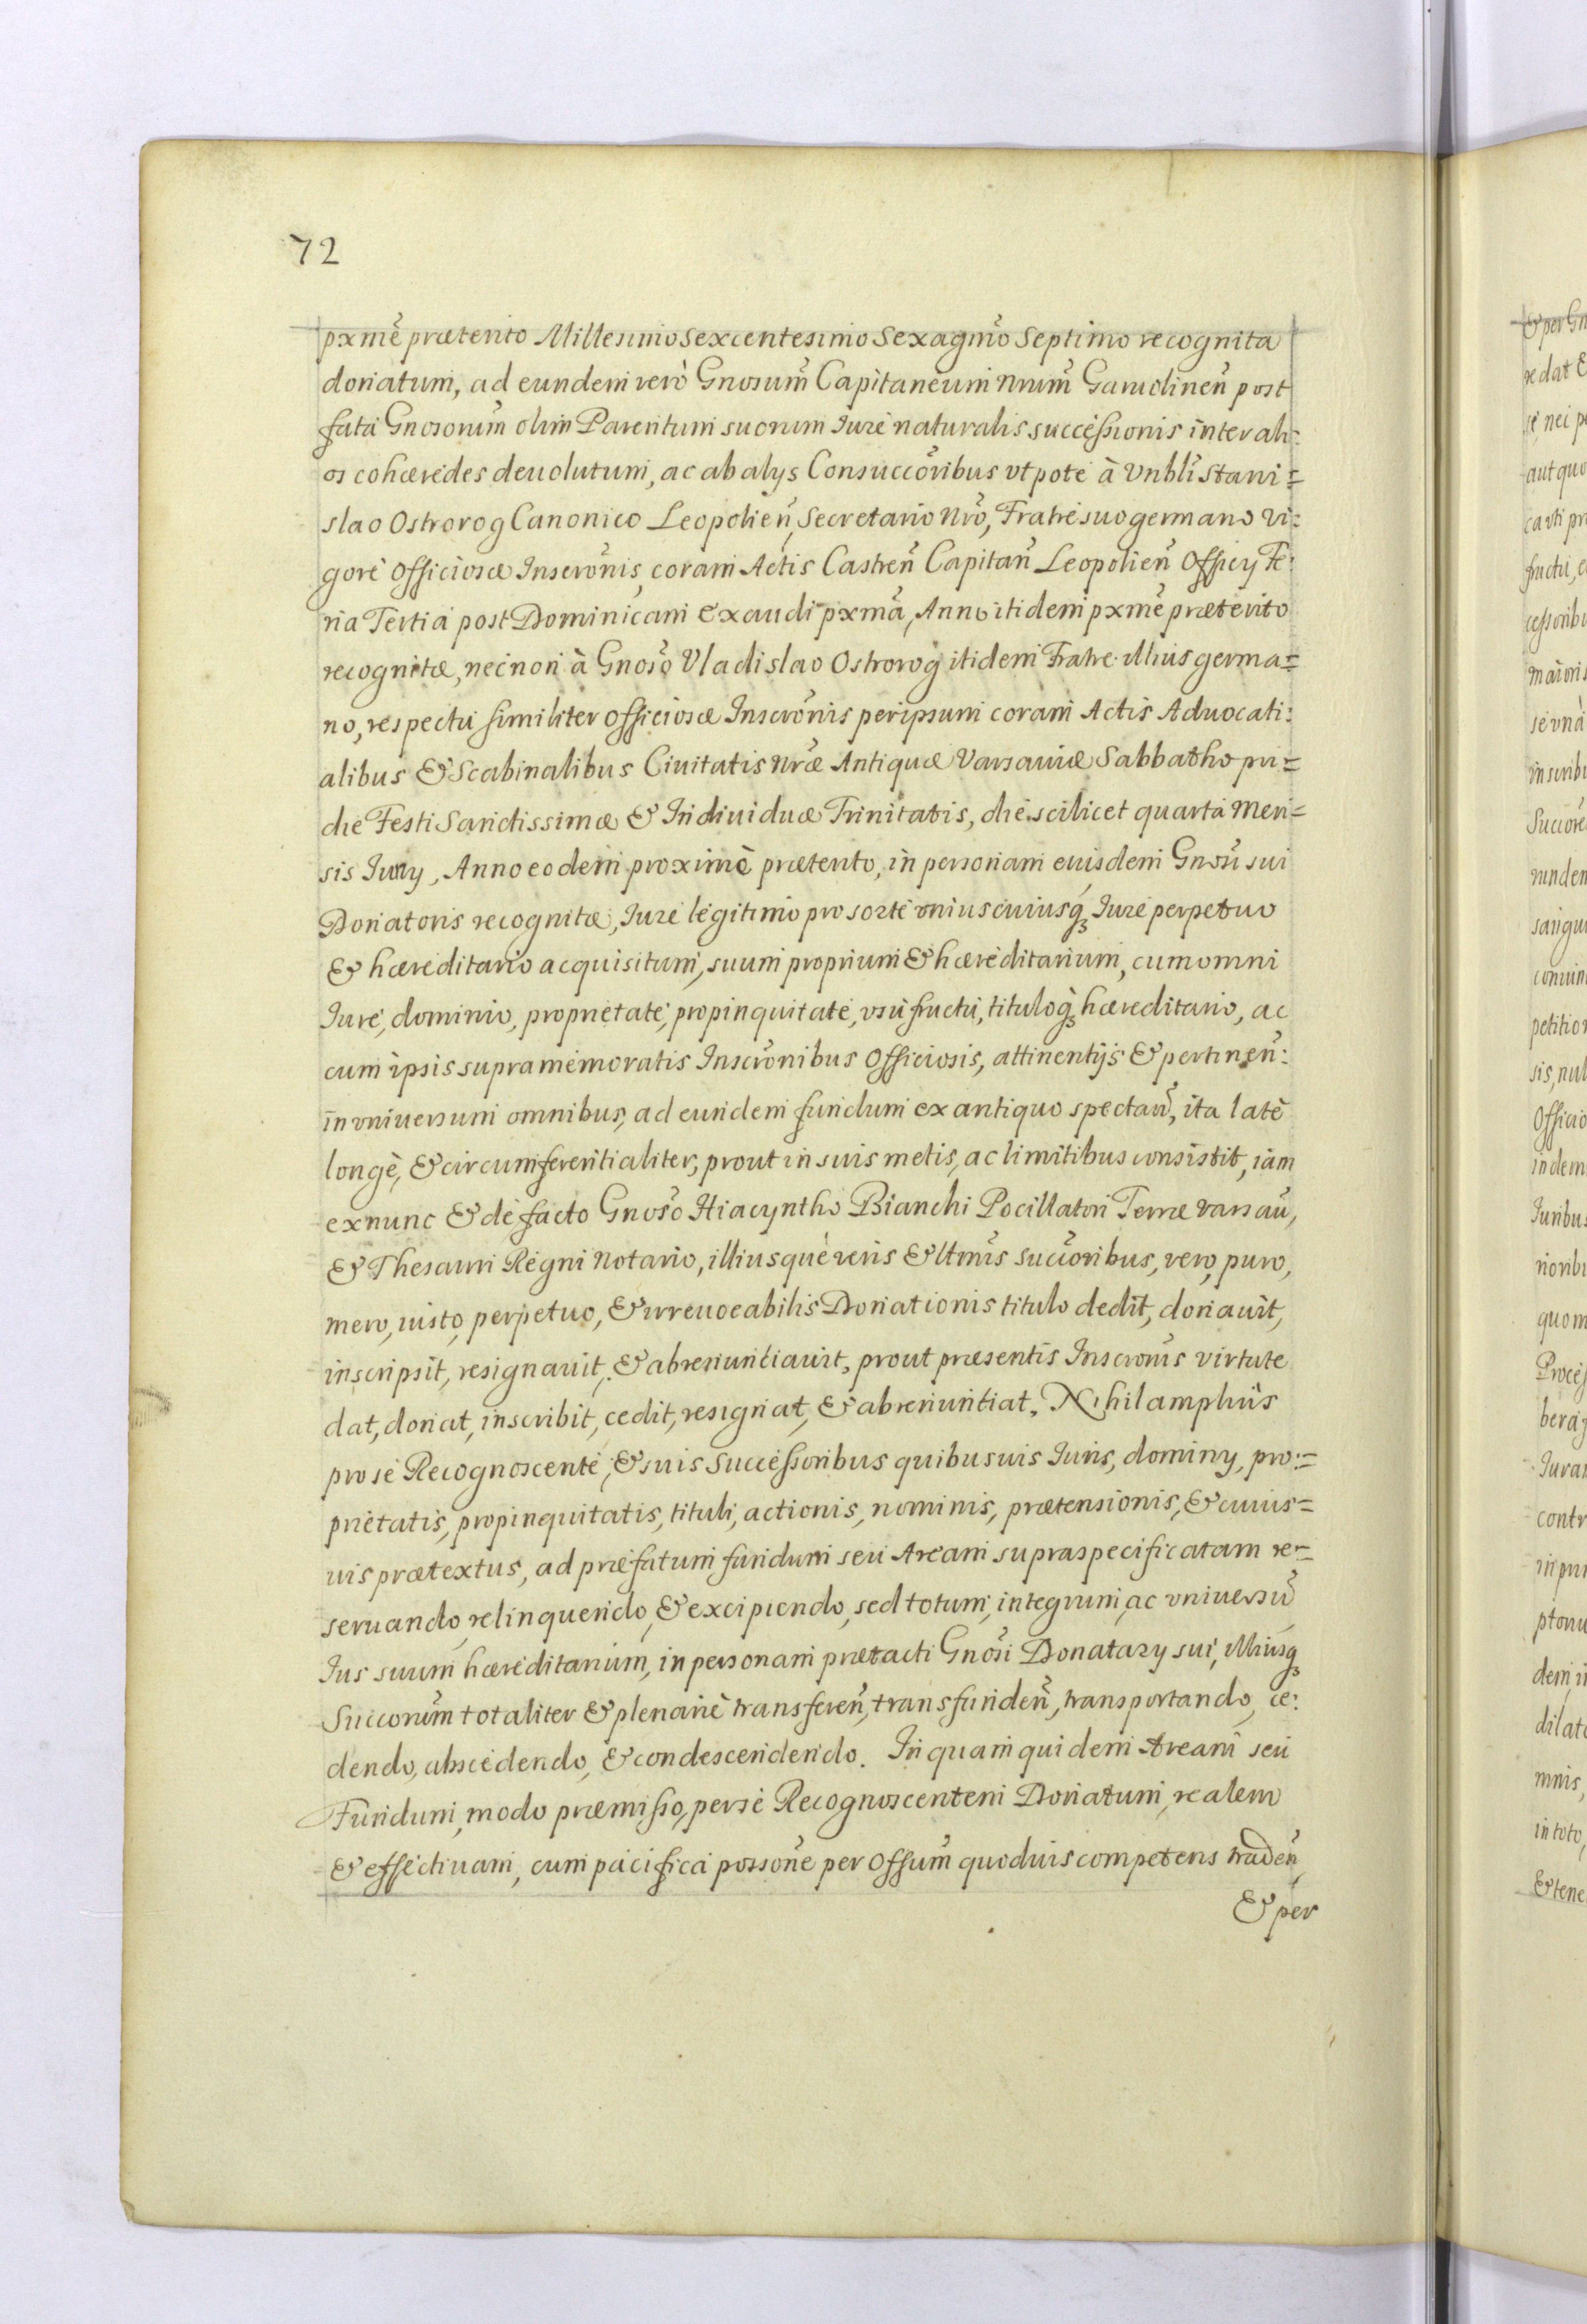 72
pxmẽ præterito Millesimo Sexcentesimo Sexagm̃o Septimo recognita
donatum, ad eundem verò Gnosum̃ Capitaneum Nrum̃ Garuolinen̄ post
fata Gnosorum̃ olim Parentum suorum Iure naturalis successionis inter ali=
os cohæredes deuolutum, ac ab alys Consuccõribus vtpote à Vnbli Stani=
slao Ostrorog Canonico Leopolien̄, Secretario Nrõ, Fratre suo germano Vi=
gore Officiosæ Inscrõnis coram Actis Castren̄ Capitan̄ Leopolien̄ Officy Fe=
ria Tertia post Dominicam Exaudi pxmã, Anno itidem pxmẽ præterito
recognitæ, necnon à Gnosõ Vladislao Ostrorog itidem Fratre illius germa=
no, respectu similiter officiosæ Inscrõnis per ipsum coram Actis Aduocati=
alibus & Scabinalibus Ciuitatis Nræ̃ Antiquæ Varsauiæ Sabbatho pri=
die Festi Sanctissimæ & Indiuiduæ Trinitatis, die scilicet quarta Men=
sis Iuny, Anno eodem proximè præterito, in personam eiusdem Gnosĩ sui
Donatoris recognitæ, Iure legitimo pro sorte vniuscuiusq; Iure perpetuo
& hæreditario acquisitum, suum proprium & hæreditarium, cum omni
Iure, dominio, proprietate, propinquitate, vsufructu, tituloq; hæreditario, ac
cum ipsis supramemoratis Inscrõnibus Officiosis, attinentijs & pertinen̄:
in vniuersum omnibus, ad eundem fundum ex antiquo spectan̄, ita latè
longè, & circumferentialiter, prout in suis metis, ac limitibus consistit, iam
exnunc & de facto Gnosõ Hiacyntho Bianchi Pocillatori Terræ Varsau̅,
& Thesauri Regni Notario, illiusque veris & ltmis̃ succõribus, vero, puro,
mero, iusto, perpetuo, & irreuocabilis Donationis titulo dedit, donauit,
inscripsit, resignauit, & abrenuntiauit, prout præsentis Inscrõnis virtute
dat, donat, inscribit, cedit, resignat, & abrenuntiat. Nihil ampliùs
pro se Recognoscente, & suis Successoribus quibusuis Iuris, dominy, pro=
prietatis, propinquitatis, tituli, actionis, nominis, prætensionis, & cuius=
uis prætextus, ad præfatum fundum seu Aream supraspecificatam re=
seruando, relinquendo, & excipiendo, sed totum, integrum, ac vniuersũ
Ius suum hæreditarium, in personam prætacti Gnosĩ Donatary sui, illiusq;
Succorum̃ totaliter & plenariè transferen̄, transfunden̄, transportando, ce=
dendo, abscedendo, & condescendendo. In quam quidem Aream seu
Fundum, modo præmisso, per se Recognoscentem Donatum, realem
& effectiuam, cum pacifica possonẽ per Offum̃ quoduis competens traden̄,
& per